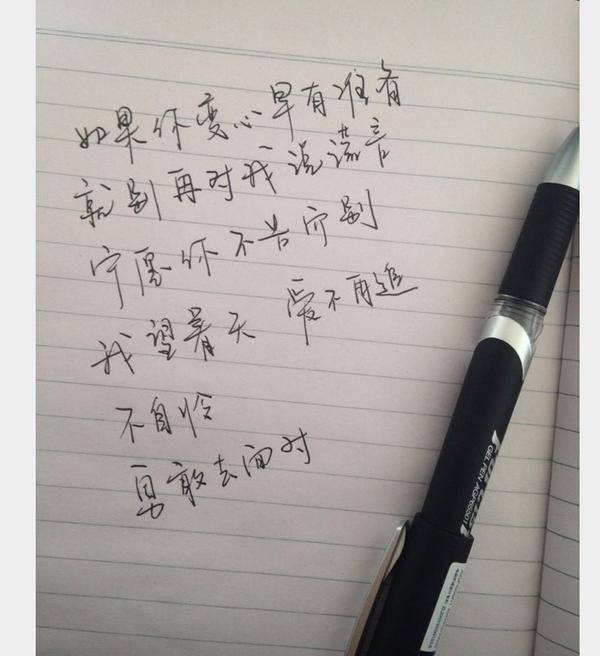 如果你变心早有准备
就别再对我说谎言
宁愿你不告而别
我望着天 爱不再追
不自怜
勇敢去面对
GEL PEN AGP65501